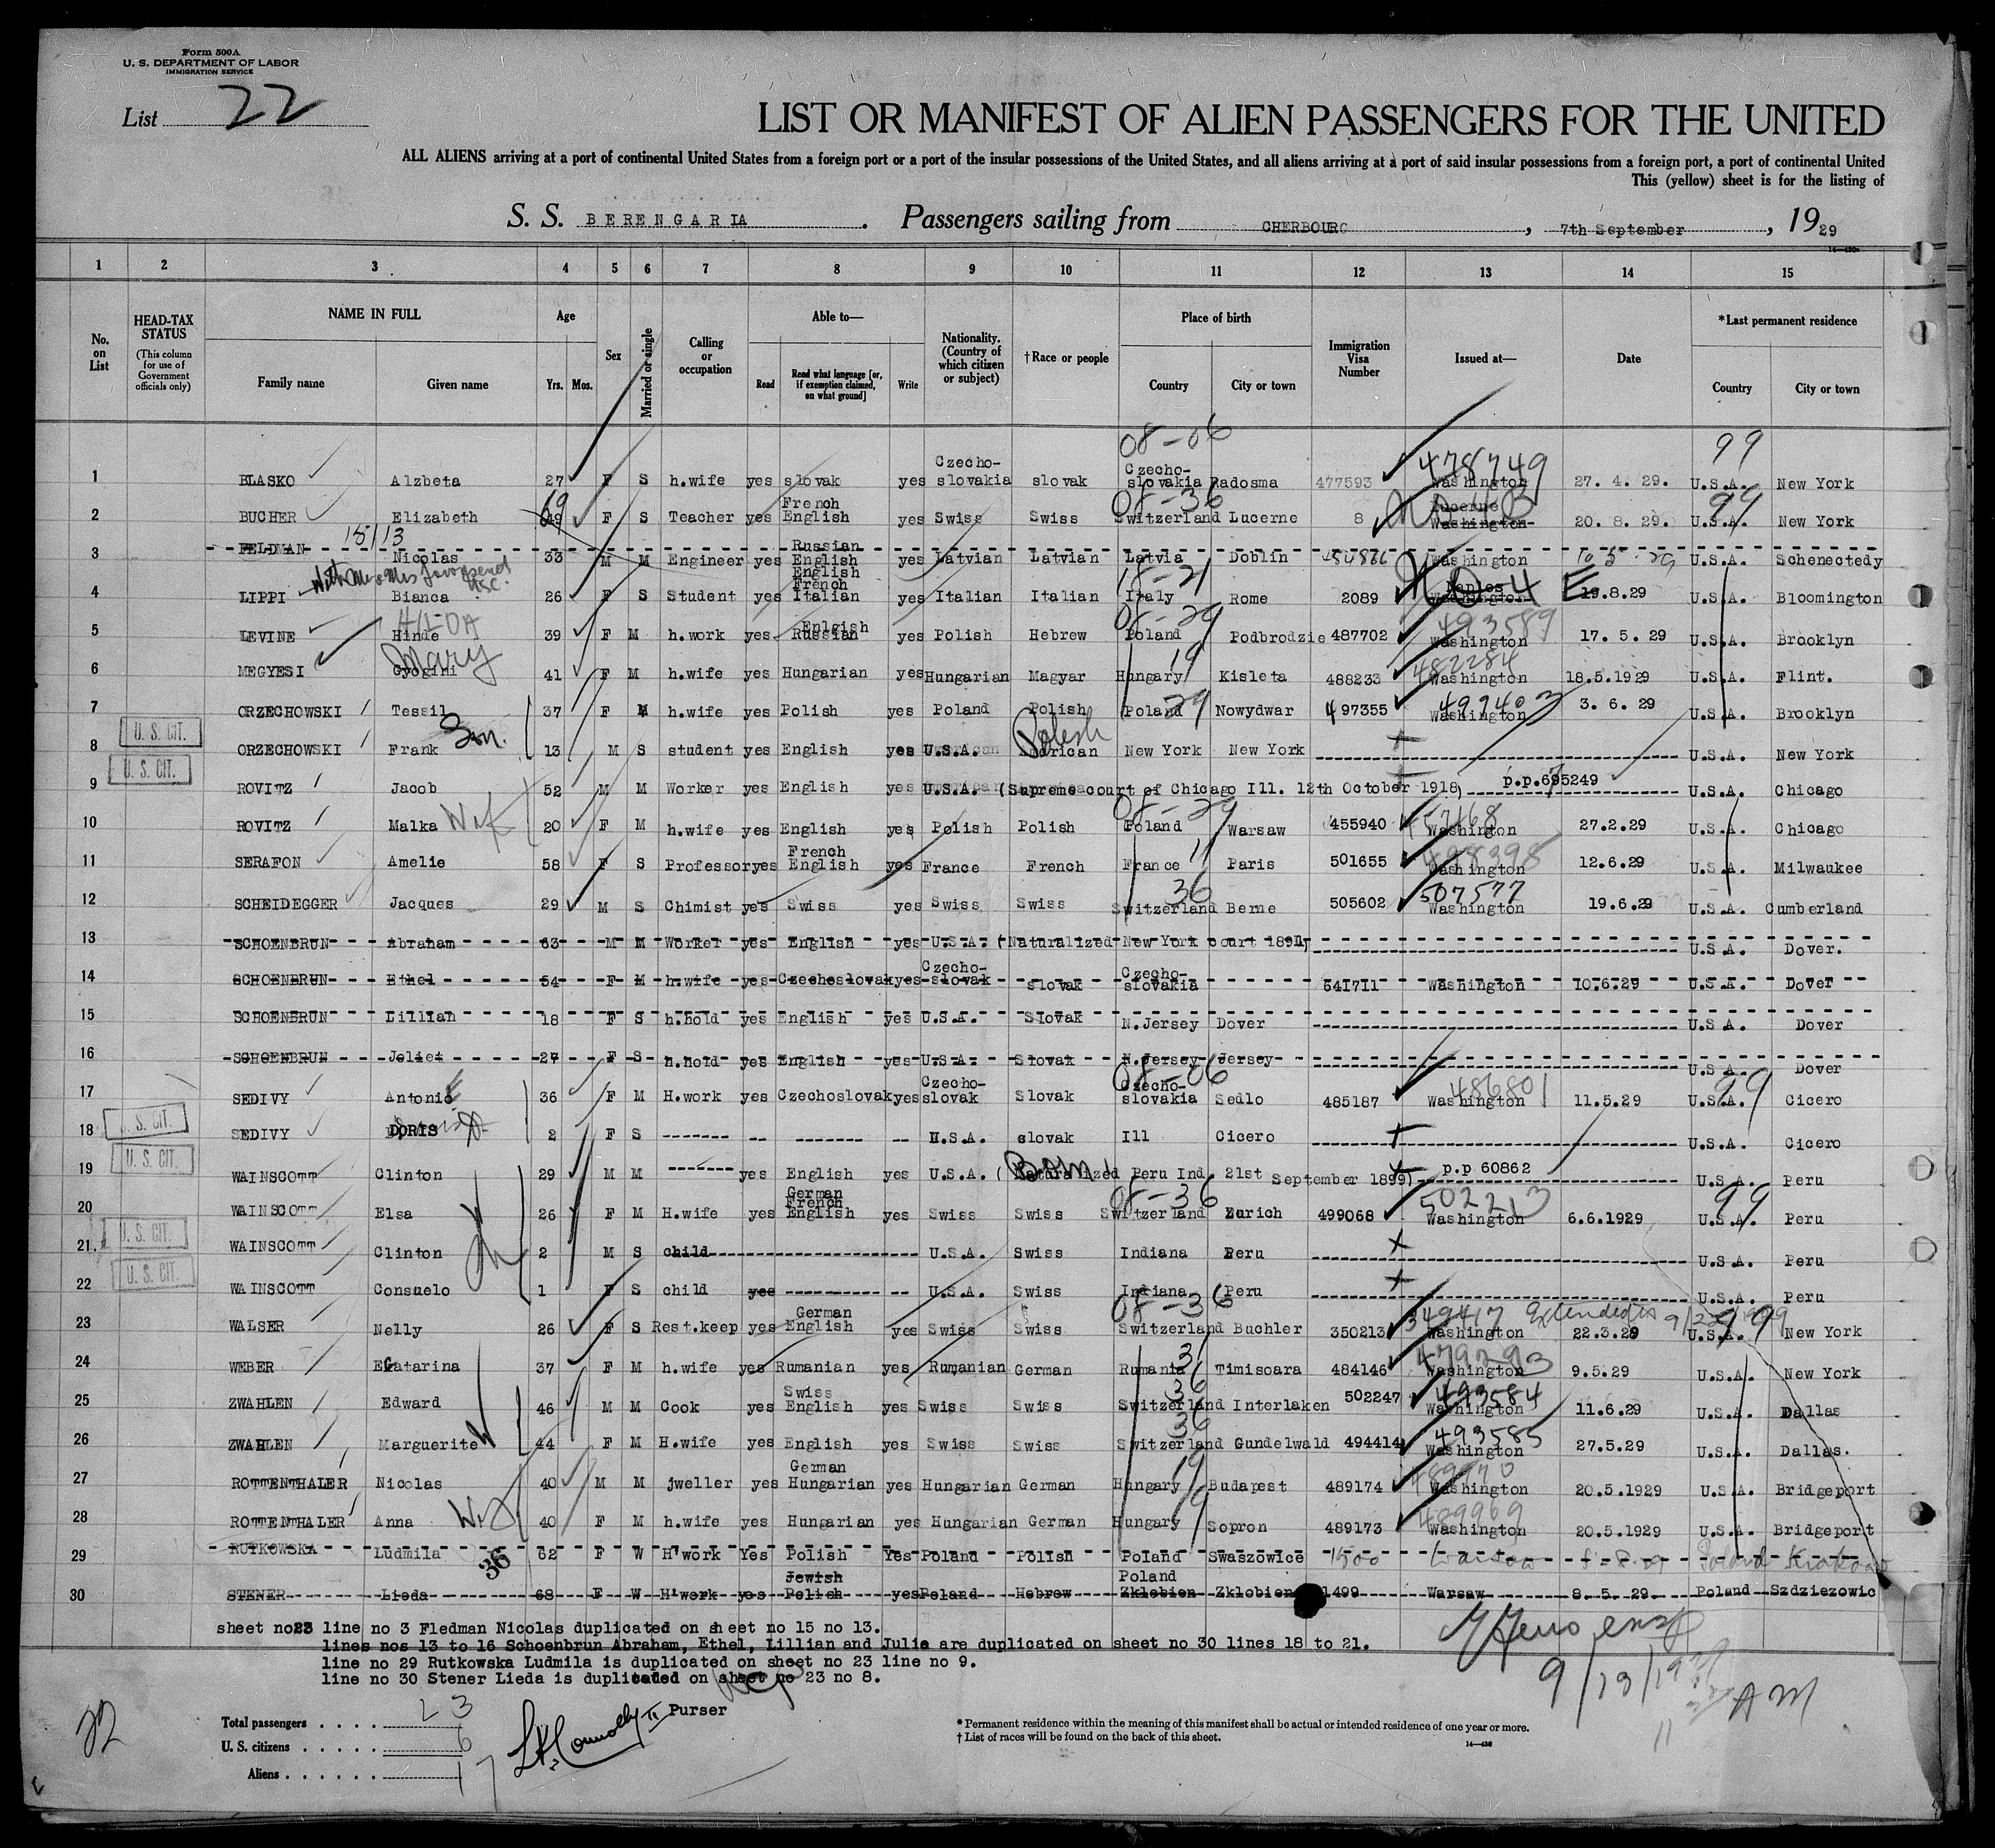 Form 500A
U. S. DEPARTMENT OF LABOR
IMMIGRATION SERVICE
List 22
LIST OR MANIFEST OF ALIEN PASSENGERS FOR THE UNITED
ALL ALIENS arriving at a port of continental United States from a foreign port or a port of the insular possessions of the United States, and all aliens arriving at a port of said insular possessions from a foreign port, a port of continental United
This (yellow) sheet is for the listing of
S. S. BERENGARIA. Passengers sailing from CHERBOURG, 7th September, 1929
1 2 3 4 5 6 7 8 9 10 11 12 13 14 15
No. on List
HEAD-TAX STATUS (This column for use of Government officials only)
NAME IN FULL Family name Given name
Age Yrs. Mos.
Sex
Married or single
Calling or occupation
Able to— Read Read what language [or, if exemption claimed, on what ground] Write
Nationality. (Country of which citizen or subject)
†Race or people
Place of birth Country City or town
Immigration Visa Number
Issued at—
Date
*Last permanent residence Country City or town
08-06 99
1 BLASKO Alzbeta 27 F S h.wife yes slovak yes Czecho-slovakia slovak Czecho-slovakia Radosma 477593 478749 Washington 27. 4. 29. U.S.A. New York
2 BUCHER Elizabeth 49 69 F S Teacher yes French English yes Swiss Swiss 08-36 Switzerland Lucerne 8 Lucerne Washington 20. 8. 29. 99 U.S.A. New York
3 FELDMAN 15/13 Nicolas 33 M M Engineer yes Russian English yes Latvian Latvian Latvia Doblin Washington U.S.A. Schenectedy
4 LIPPI Bianca 26 F S Student yes English French Italian yes Italian Italian 18-21 Italy Rome 2089 Naples Washington 19.8.29 U.S.A. Bloomington
5 LEVINE HILDA Hinde 39 F M h.work yes Enlgish Russian yes Polish Hebrew 08-29 Poland Podbrodzie 487702 493589 Washington 17. 5. 29 U.S.A. Brooklyn
6 MEGYESI Mary Gyogini 41 F M h.wife yes Hungarian yes Hungarian Magyar 19 Hungary Kisleta 488233 482284 Washington 18.5.1929 U.S.A. Flint.
7 ORZECHOWSKI Tessil 37 F M h.wife yes Polish yes Poland Polish 29 Poland Nowydwar 497355 499403 Washington 3. 6. 29 U.S.A. Brooklyn
U. S. CIT.
8 ORZECHOWSKI Frank Son. 13 M S student yes English yes U.S.A. Polish New York New York U.S.A. New York
U. S. CIT.
9 ROVITZ Jacob 52 M M Worker yes English yes U.S.A. (Supreme court of Chicago Ill. 12th October 1918) p.p.695249 U.S.A. Chicago
10 ROVITZ Malka 20 F M h.wife yes English yes Polish Polish 08-29 Poland Warsaw 455940 Washington 27.2.29 U.S.A. Chicago
11 SERAFON Amelie 58 F S Professor yes French English yes France French 11 France Paris 501655 498398 Washington 12.6.29 U.S.A. Milwaukee
12 SCHEIDEGGER Jacques 29 M S Chimist yes Swiss yes Swiss Swiss 36 Switzerland Berne 505602 507577 Washington 19.6.29 U.S.A. Cumberland
13 SCHOENBRUN Abraham 63 M M Worker yes English yes U.S.A. (Naturalized New York court 1891) U.S.A. Dover.
14 SCHOENBRUN Ethel 54 F M h.wife yes Czechoslovak yes Czecho-slovak slovak Czecho-slovakia 541711 Washington 10.6.29 U.S.A. Dover
15 SCHOENBRUN Lillian 18 F S h.hold yes English yes U.S.A. Slovak N.Jersey Dover U.S.A. Dover
16 SCHOENBRUN Joliet 27 F S h.hold yes English yes U.S.A. Slovak N.Jersey Jersey U.S.A. Dover
17 SEDIVY Antonie 36 F M H.work yes Czechoslovak yes Czecho-slovak Slovak 08-06 Czecho-slovakia Sedlo 485187 486801 Washington 11.5.29 99 U.S.A. Cicero
U. S. CIT.
18 SEDIVY DORIS 2 F S U.S.A. slovak Ill Cicero U.S.A. Cicero
U. S. CIT.
19 WAINSCOTT Clinton 29 M M yes English yes U.S.A. (Born Naturalized Peru Ind. 21st September 1899) p.p 60862 U.S.A. Peru
20 WAINSCOTT Elsa 26 F M H.wife yes German French English yes Swiss Swiss 08-36 Switzerland Zurich 499068 502213 Washington 6.6.1929 99 U.S.A. Peru
U. S. CIT.
21. WAINSCOTT Clinton 2 M S child U.S.A. Swiss Indiana Peru U.S.A. Peru
U. S. CIT.
22 WAINSCOTT Consuelo 1 F S child yes U.S.A. Swiss Indiana Peru U.S.A. Peru
23 WALSER Nelly 26 F S Rest.keep yes German English yes Swiss Swiss 08-36 Switzerland Buchler 350213 349417 Washington 22.3.29 U.S.A. New York
24 WEBER Ecatarina 37 F M h.wife yes Rumanian yes Rumanian German 31 Rumania Timisoara 484146 479293 Washington 9.5.29 U.S.A. New York
25 ZWAHLEN Edward 46 M M Cook yes Swiss English yes Swiss Swiss 36 Switzerland Interlaken 502247 493584 Washington 11.6.29 U.S.A. Dallas
26 ZWAHLEN Marguerite 44 F M H.wife yes English yes Swiss Swiss 36 Switzerland Gundelwald 494414 493585 Washington 27.5.29 U.S.A. Dallas.
27 ROTTENTHALER Nicolas 40 M M jweller yes German Hungarian yes Hungarian German 19 Hungary Budapest 489174 Washington 20.5.1929 U.S.A. Bridgeport
28 ROTTENTHALER Anna 40 F M h.wife yes Hungarian yes Hungarian German 19 Hungary Sopron 489173 489969 Washington 20.5.1929 U.S.A. Bridgeport
29 RUTKOWSKA Ludmila 62 F W H'work Yes Polish Yes Poland Polish Poland Swaszowice 1500 Warsaw Poland Krakow
30 STENER Lieda 68 F W H'work yes Jewish Polish yes Poland Hebrew Poland Zklobien Zklobien 1499 Warsaw 8.5.29. Poland Szdziezowic
sheet no23 line no 3 Fledman Nicolas duplicated on sheet no 15 no 13.
lines nos 13 to 16 Schoenbrun Abraham, Ethel, Lillian and Julie are duplicated on sheet no 30 lines 18 to 21.
line no 29 Rutkowska Ludmila is duplicated on sheet no 23 line no 9.
line no 30 Stener Lieda is duplicated on sheet no 23 no 8.
9/13/1929
Purser
22
Total passengers . . . . 23
U. S. citizens . . . . . 6
Aliens . . . . . . 17
*Permanent residence within the meaning of this manifest shall be actual or intended residence of one year or more.
†List of races will be found on the back of this sheet.
14—430
AM